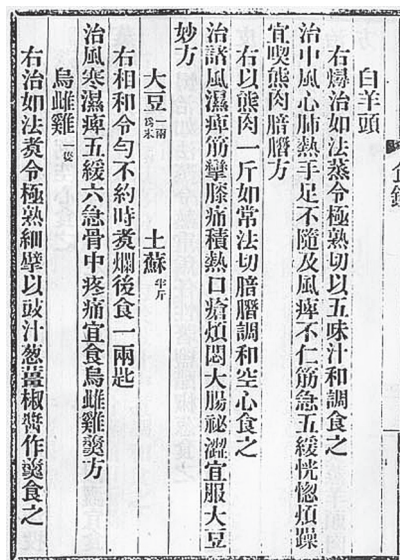 食鑑
白羊頭
右燖治如法蒸令極熟切以五味汁和調食之
治中風心肺熱手足不隨及風痺不仁筋急五緩恍惚煩躁
宜喫熊肉腤䐶方
右以熊肉一斤如常法切腤䐶調和空心食之
治諸風濕痺筋攣膝痛積熱口瘡煩悶大腸祕澀宜服大豆
妙方
大豆一兩為末 土蘇半斤
右相和令勻不約時煑爛後食一兩匙
治風寒濕痺五緩六急骨中疼痛宜食烏雌雞羹方
烏雌雞一隻
右治如法煑令極熟細擘以豉汁葱薑椒醬作羹食之